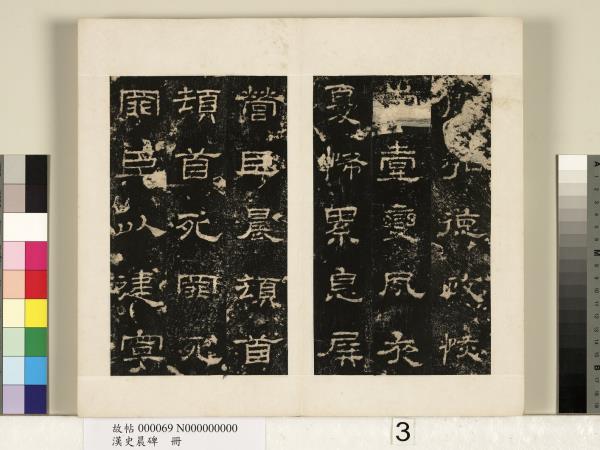 弘德政恢
壹變夙夜
憂怖累息屏
營臣晨頓首
頓首死罪死
罪臣以建寧
故帖 000069 N000000000
漢史晨碑 冊
3